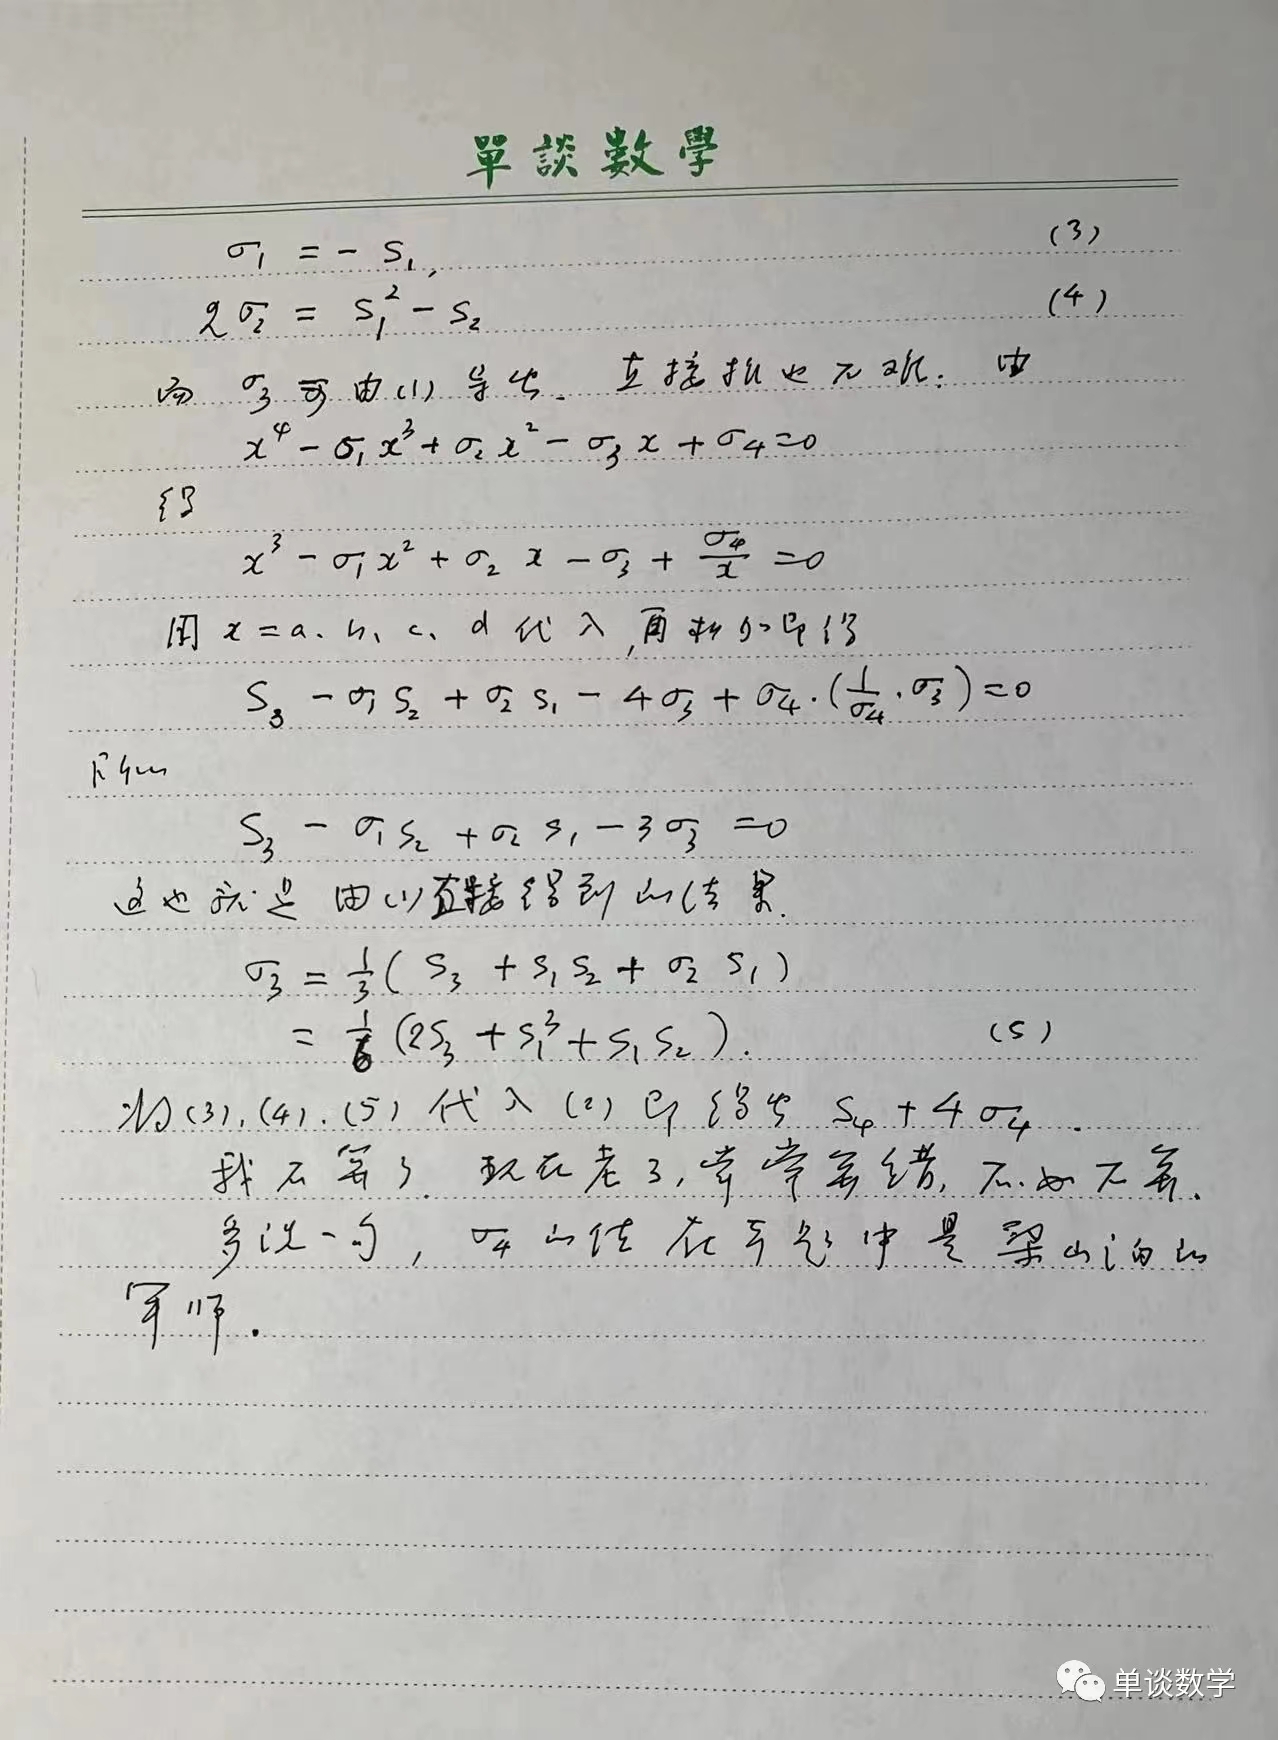 單談數學
σ₁ = - S₁, (3)
2σ₂ = S₁² - S₂ (4)
而 σ₃ 可由(1)导出. 直接推也不难. 由
x⁴ - σ₁x³ + σ₂x² - σ₃x + σ₄ = 0
得
x³ - σ₁x² + σ₂ x - σ₃ + σ₄/x = 0
用 x = a、b、c、d 代入, 再相加即得
S₃ - σ₁S₂ + σ₂S₁ - 4σ₃ + σ₄·(1/σ₄·σ₃) = 0
S₃ - σ₁S₂ + σ₂S₁ - 3σ₃ = 0
这也就是由(1)直接得到的结果.
σ₃ = 1/3(S₃ + S₁S₂ + σ₂ S₁)
= 1/6(2S₃ + S₁³ + S₁S₂). (5)
将(3), (4), (5) 代入(2) 即得出 S₄ + 4σ₄.
我不算了. 现在老了, 常常算错, 不如不算.
多说一句, σ₄的值在本题中是梁山泊的
军师.
单谈数学